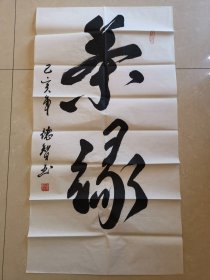 茶缘
己亥年 德智书